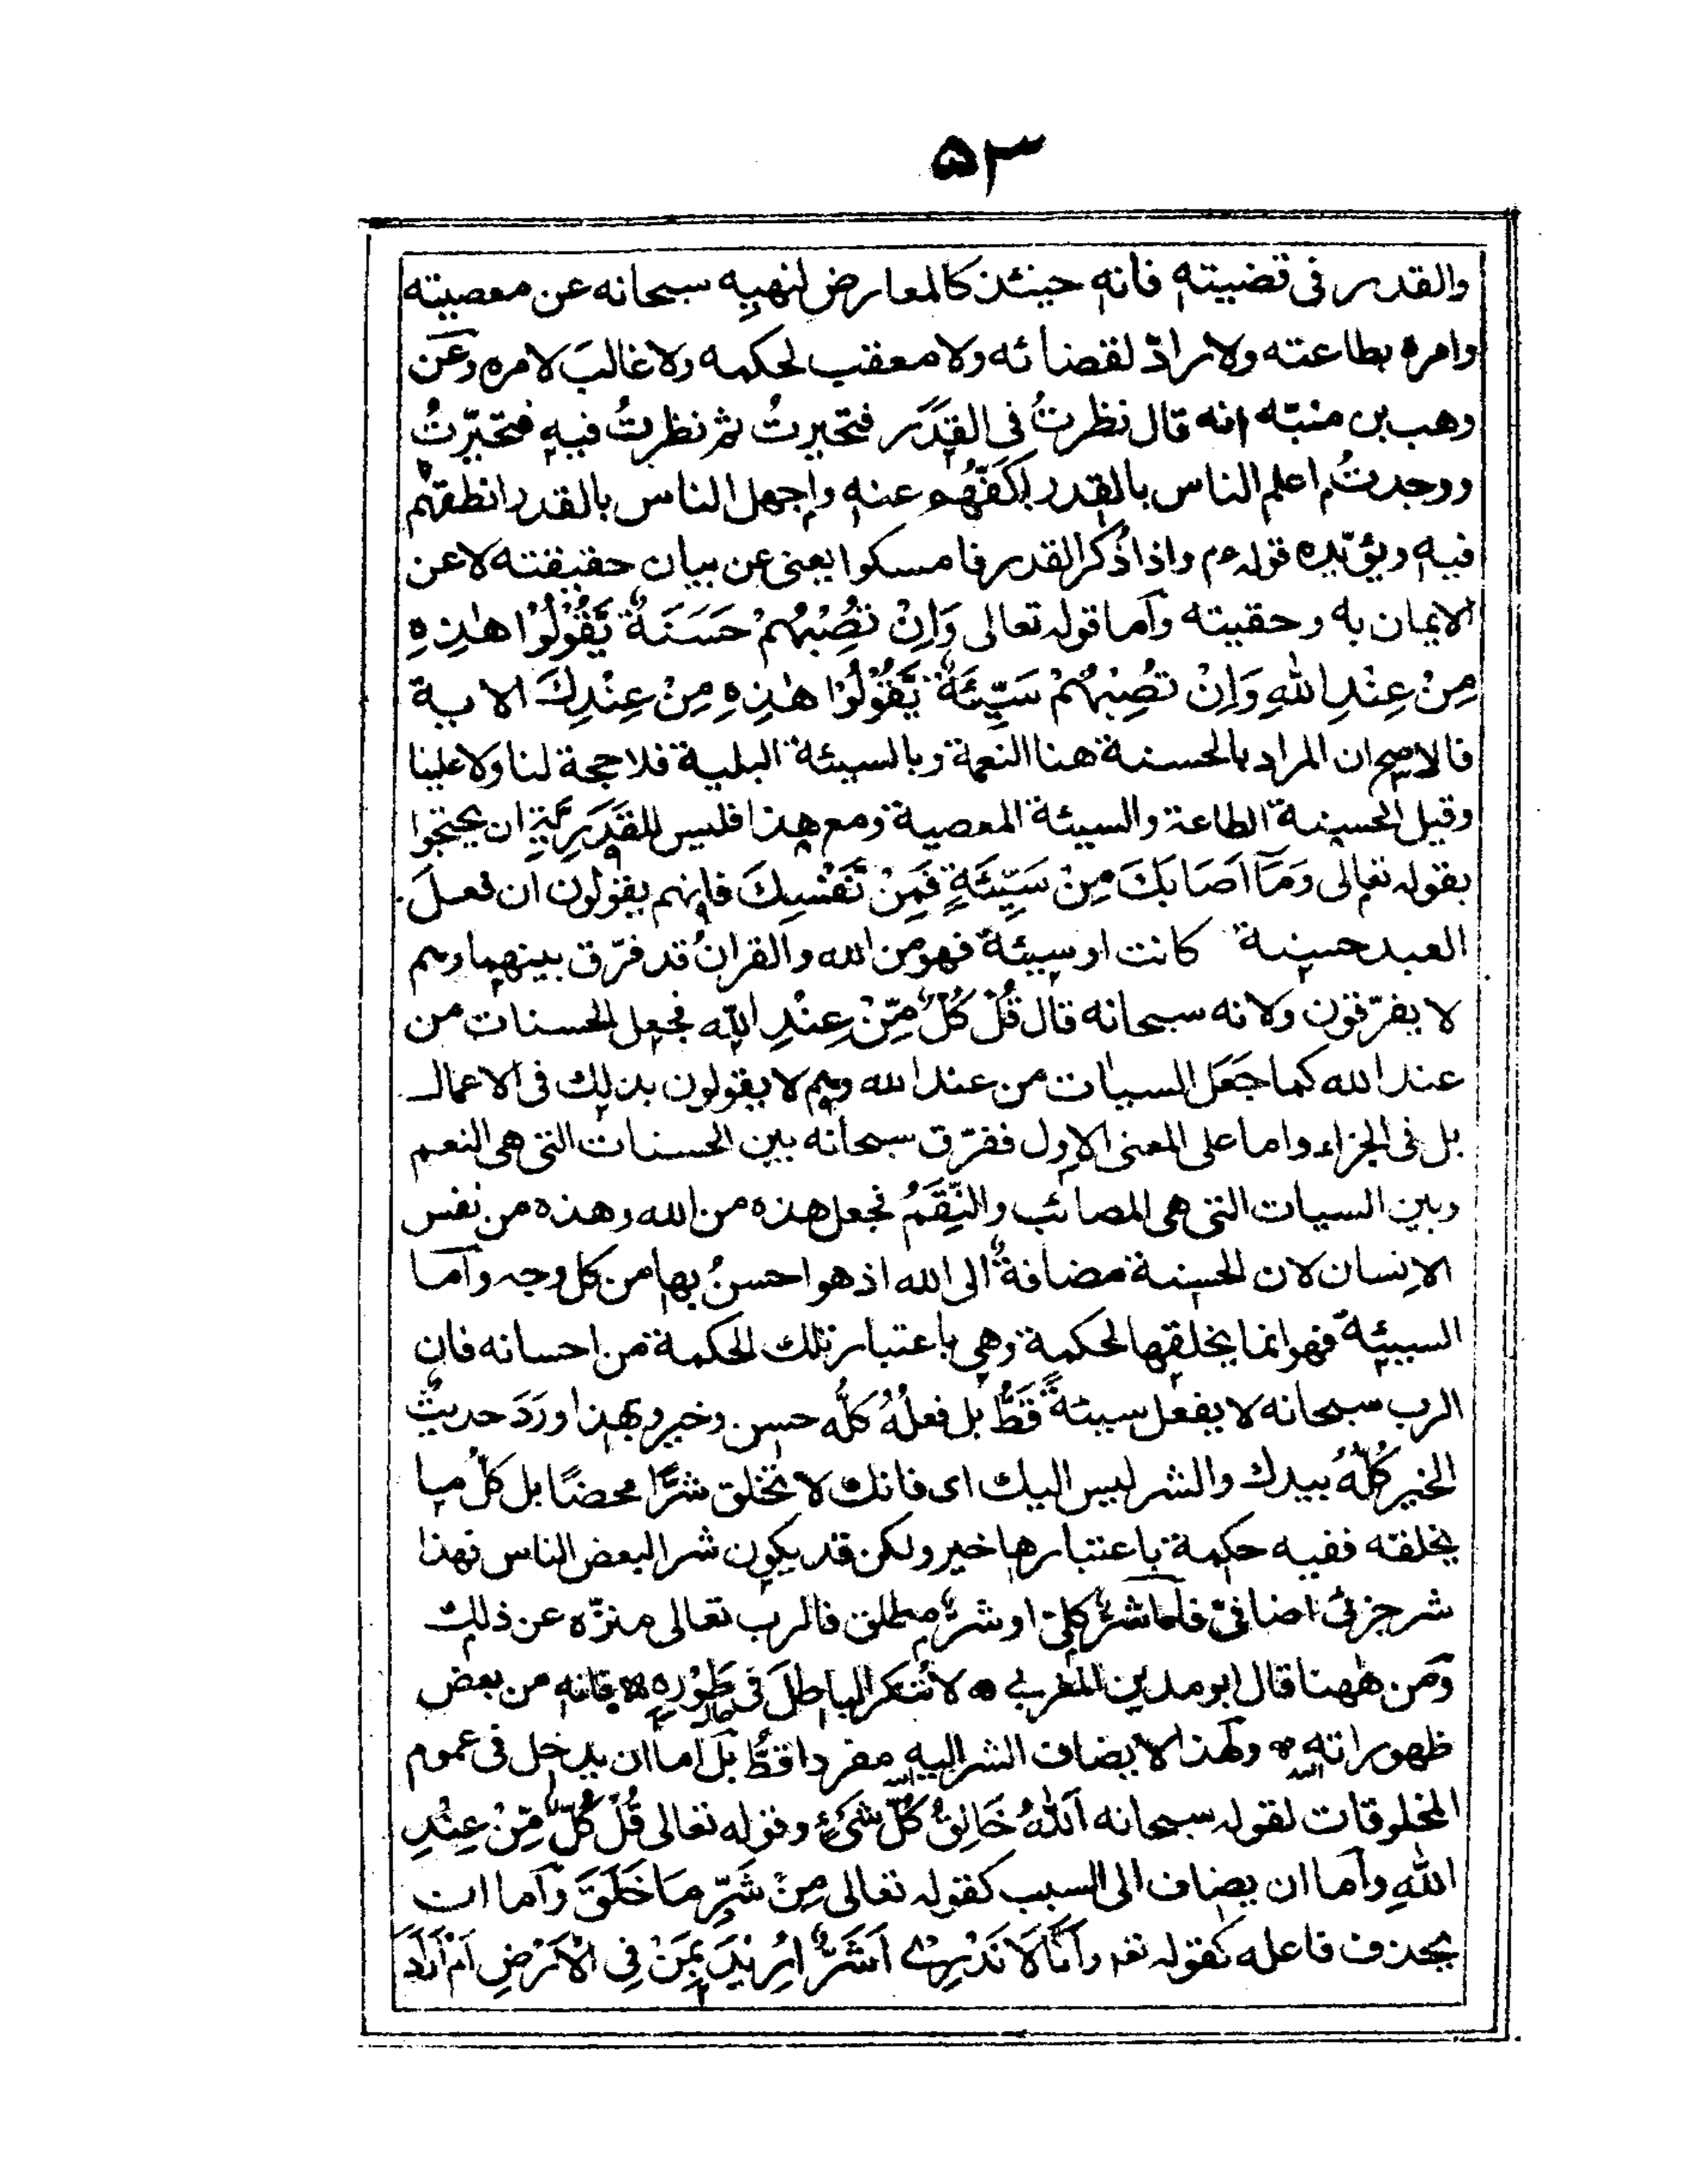 ۵۳
والقدر فی قضیته فانه حینئذ کالمعارض لنهیه سبحانه عن معصیته
وامره بطاعته ولا رادّ لقضائه ولا معقب لحکمه ولا غالبَ لامره وعَن
وهب بن منبّه انه قال نظرتُ فی القَدَر فتحیرتُ ثم نظرتُ فیه فتحیّرتُ
ووجدتُ اعلم الناس بالقدر اکفّهُم عنه واجهل الناس بالقدر انطقهم
فیه ویؤیّده قوله ۴م واذا ذُکر القدر فامسکوا یعنی عن بیان حقیقته لا عن
الایمان به وحقیته وآما قوله تعالی وَاِنْ تُصِبْهُمْ حَسَنَةٌ یَّقُوْلُوْا هٰذِهِ
مِنْ عِنْدِ اللّٰهِ وَاِنْ تُصِبْهُمْ سَیِّئَةٌ یَّقُوْلُوْا هٰذِهِ مِنْ عِنْدِكَ الایة
فالاصح ان المراد بالحسنة هنا النعمة وبالسیئة البلیة فلا حجة لنا ولا علینا
وقیل الحسنة الطاعة والسیئة المعصیة ومع هذا فلیس للقَدَرِیَّةِ ان یحتجوا
بقوله تعالی وَمَآ اَصَابَكَ مِنْ سَیِّئَةٍ فَمِنْ نَّفْسِكَ فانهم یقولون ان فعلَ
العبد حسنة کانت او سیئة فهو من الله والقرانُ قد فرّق بینهما وهم
لا یفرّقون ولانه سبحانه قال قُلْ کُلٌّ مِّنْ عِنْدِ اللّٰه فجعل الحسنات من
عند الله کما جَعَل السیات من عند الله وهم لا یقولون بذلك فی الاعمال
بل فی الجزاء واما علی المعنی الاول ففرّق سبحانه بین الحسنات التی هی النعم
وبین السیات التی هی المصائب والنِّقَمُ فجعل هذه من الله وهذه من نفس
الانسان لان الحسنة مضافةٌ الی الله اذ هو احسنُ بها من کل وجه وآما
السیئة فهو انما یخلقها لحکمة وهی باعتبار تلك الحکمة من احسانه فان
الرب سبحانه لا یفعل سیئةً قَطُّ بل فعلُهُ کلُّه حسن وخیر وبهذا ورَدَ حدیثٌ
الخیر کُلُّهُ بیدك والشر لیس الیك ای فانك لا تَخلق شرًّا محضًا بل کلُّ ما
یخلقه ففیه حکمة باعتبارها خیر ولکن قد یکون شرا لبعض الناس فهذا
شر جزئیٌ اضافیٌّ فامّا شرٌّ کلیّ او شرٌّ مطلق فالرب تعالی منزّه عن ذلك
وَمن ههنا قال ابو مدین المغربی لا تُنکر الباطلَ فی طَوْرِهِ فانه من بعض
ظهوراته ولهذا لا یضاف الشر الیه مفردا قطُّ بل اما ان یدخل فی عموم
المخلوقات لقوله سبحانه اَللّٰهُ خَالِقُ کُلِّ شَیْءٍ وقوله تعالی قُلْ کُلٌّ مِّنْ عِنْدِ
اللّٰهِ وآما ان یضاف الی السبب کقوله تعالی مِنْ شَرِّ مَا خَلَقَ وآما ان
یحذف فاعله کقوله تعہ وَاَنَّا لَا نَدْرِیْ اَشَرٌّ اُرِیْدَ بِمَنْ فِی الْاَرْضِ اَمْ اَرَادَ